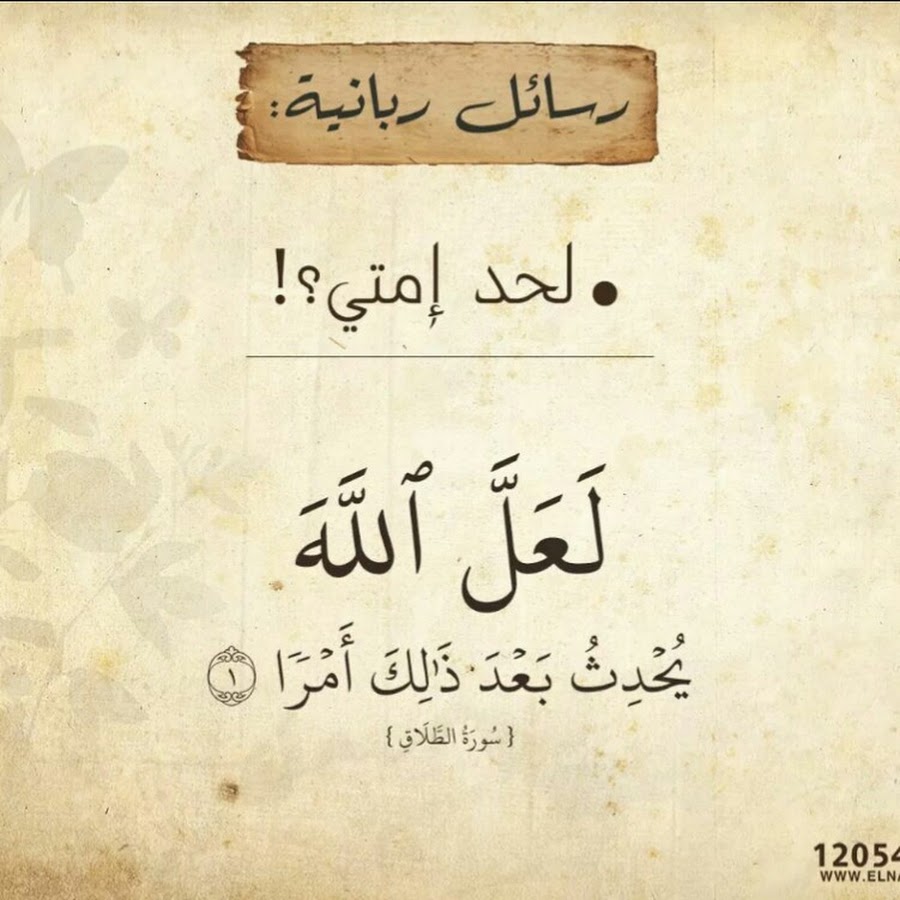 رسائل ربانية:
• لحد إمتي؟!
لَعَلَّ ٱللَّهَ
يُحْدِثُ بَعْدَ ذَٰلِكَ أَمْرًا ١
{ سُورَةُ الطَّلَاقِ }
12054
WWW.ELNA